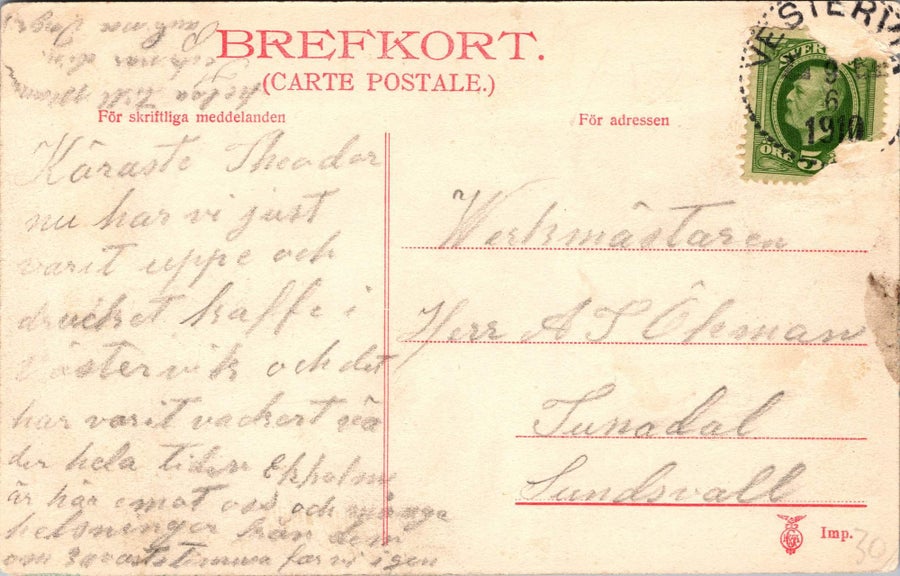 BREFKORT.
(CARTE POSTALE.)
För skriftliga meddelanden
För adressen
VESTERVIK
SVERIGE
6
1910
5 ÖRE
Käraste Theodor
nu har vi just
varit uppe och
druckit kaffe i
Västervik och det
har varit vackert vä
der hela tiden Ekholms
är här emot oss och många
helsningar från dem
om
far vi igen
Werkmästaren
Herr A S Öhman
Sunadal
Sundsvall
Imp.
30